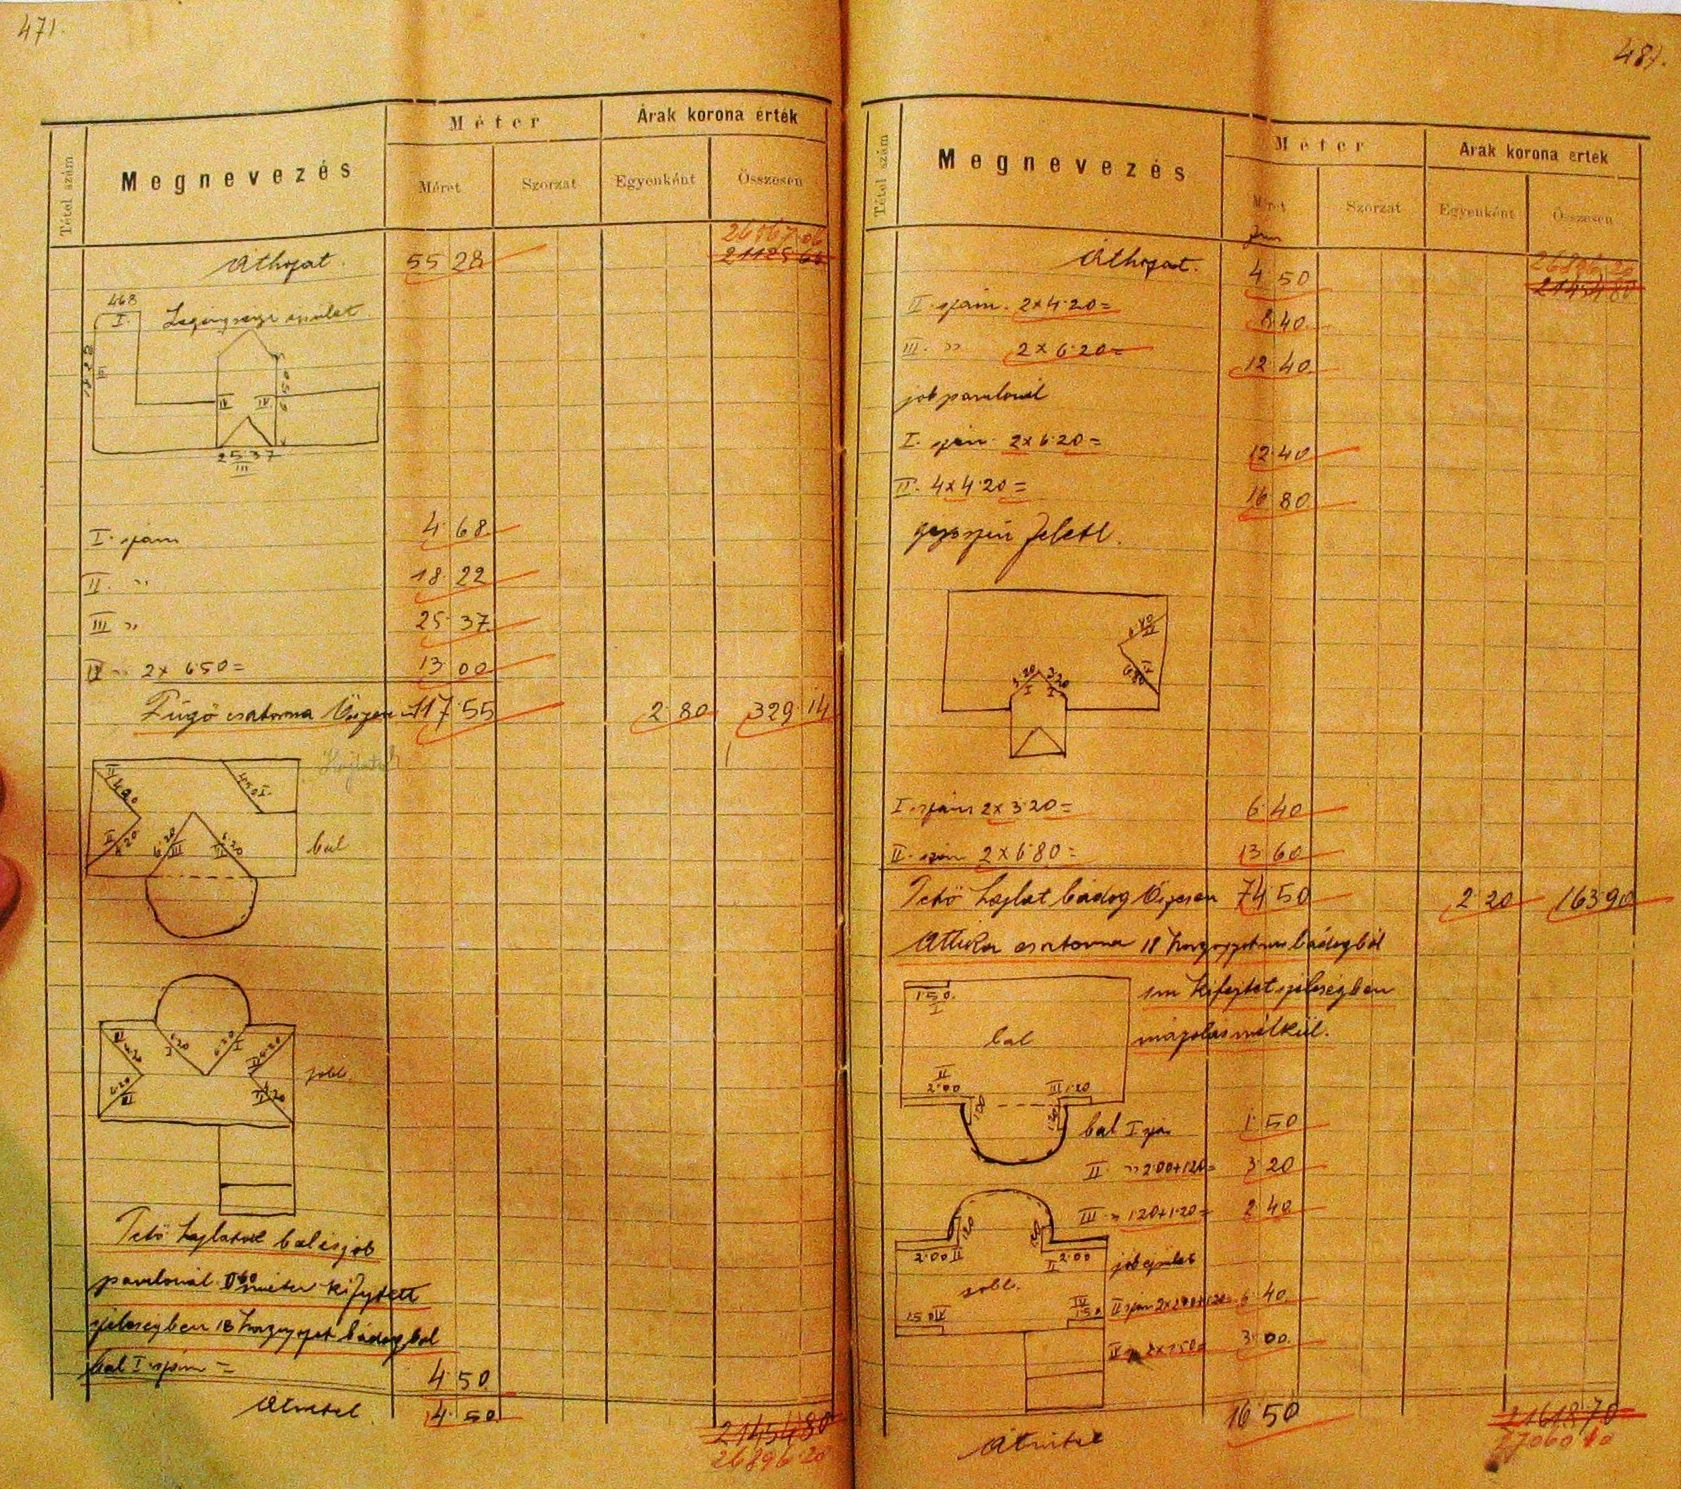 471.
Tétel szám
Megnevezés
Méter
Árak korona érték
Méret
Szorzat
Egyenként
Összesen
Áthozat. 55 28 26567.06
21125 66
468
I. Legénységi épület
18 22
II
6 50
IV IV
25 37
III
I. szám 4 68
II. " 18 22
III " 25 37
IV " 2x 6.50= 13 00
Függő csatorna Összesen 117 55 2 80 329 14
Hajlatok
IV 4.20 4.50 I.
II 4.20 6.20 III 6.20 III bal
II 4.20 6.20 I 6.20 I II 4.20
4.20 II II 4.20 jobb.
Tető hajlatok bal és job
pavilonál 0.60 méter kifejtett
szélességben 18 horgonyzott bádogból
bal I szám = 4 50
Átvitel. 4 50 21454 80
26896.20
481.
Tétel szám
Megnevezés
Méter
Árak korona érték
Méret
Szorzat
Egyenként
Összesen
fm
Áthozat. 4 50 26896.20
21454 80
II. szám. 2x4.20= 8.40
III. " 2x6.20= 12 40
job pavilonál
I. szám. 2x6.20= 12.40
II. 4x4.20= 16 80
3.20 I 3.20 I
6.80 II
I. szám 2x3.20= 6.40
II. szám 2x6.80= 13 60
Tető hajlat bádog Összesen 74 50 2 20 163 90
Attika csatorna 18 horgonyzott bádogból
1m kifejtet szélességben
mázolás nélkül.
1.50. I
bal
II 2.00 III 1.20
1.20
bal I szá 1.50
II " 2.00+1.20= 3.20
III " 1.20+1.20= 2 40
1.20 1.20
2.00 II II 2.00 jób épület
jobb.
1.50 IV IV 1.50 II szám 2x2.00+1.20= 6 40
IV " 2x1.50= 3.00
Átvitel 16 50 21618 70
27060 10